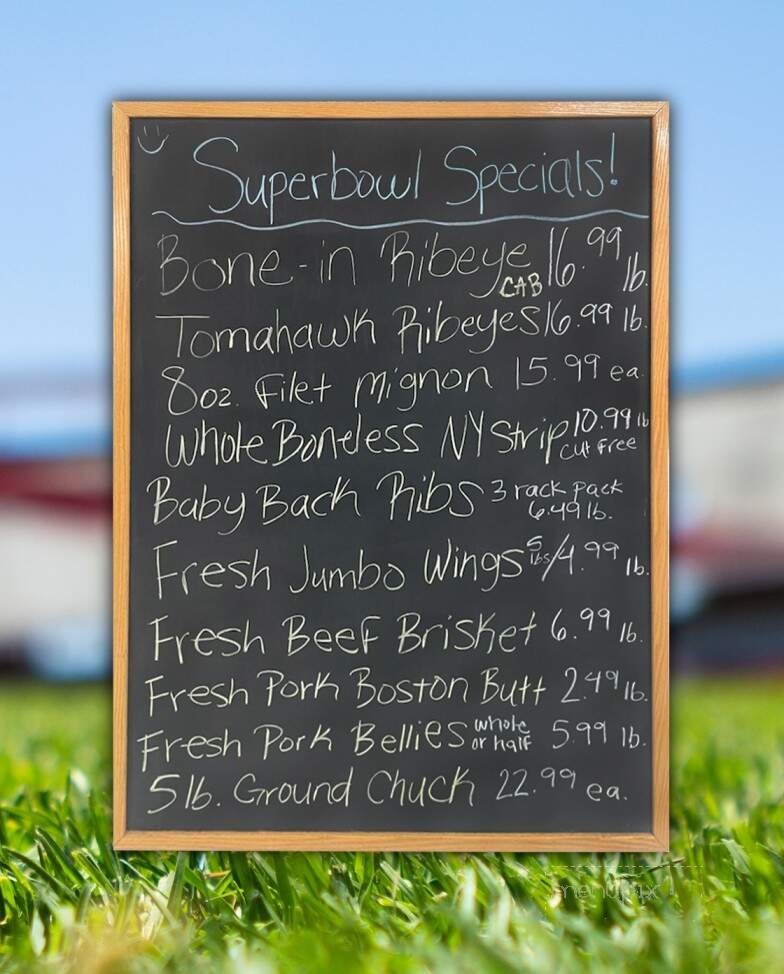 Superbowl Specials!
Bone-in Ribeye CAB 16.99 lb.
Tomahawk Ribeyes 16.99 lb.
8oz. Filet Mignon 15.99 ea.
Whole Boneless NY Strip 10.99 lb cut free
Baby Back Ribs 3 rack pack 6.49 lb.
Fresh Jumbo Wings 5 lbs/4.99 lb.
Fresh Beef Brisket 6.99 lb.
Fresh Pork Boston Butt 2.49 lb.
Fresh Pork Bellies whole or half 5.99 lb.
5 lb. Ground Chuck 22.99 ea.